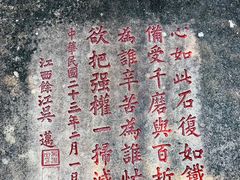 心如此石復如鐵
備受千磨與百折
為誰辛苦為誰
欲把强權一掃滅
中華民國二十三年二月一日
江西餘江吳邁